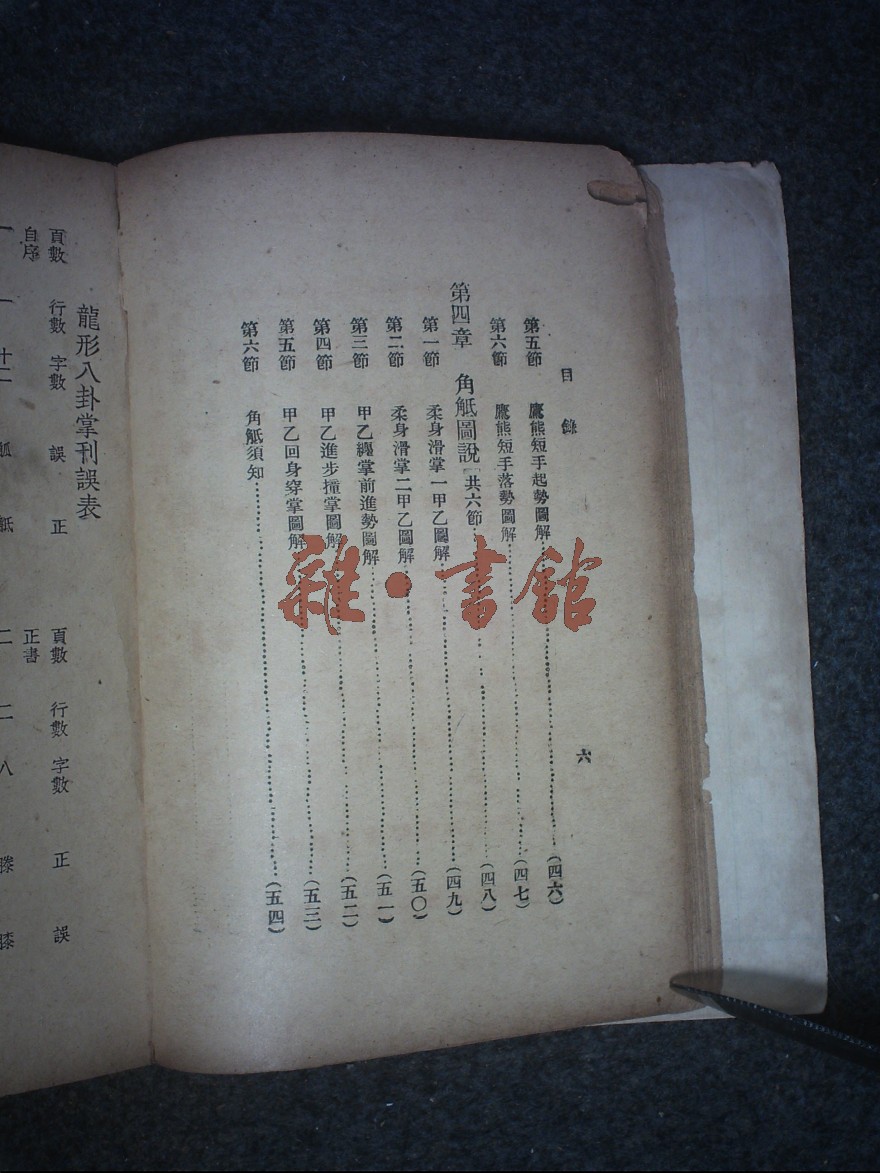 目錄 六
第五節 鷹熊短手起勢圖解……(四六)
第六節 鷹熊短手落勢圖解……(四七)
第四章 角觝圖說〔共六節……(四八)
第一節 柔身滑掌一甲乙圖解……(四九)
第二節 柔身滑掌二甲乙圖解……(五〇)
第三節 甲乙纏掌前進勢圖解……(五一)
第四節 甲乙進步撞掌圖解……(五二)
第五節 甲乙回身穿掌圖解……(五三)
第六節 角觝須知……(五四)
龍形八卦掌刊誤表
頁數 行數 字數 誤 正 頁數 行數 字數 正 誤
自序 正書
一 一 十二 二 二 八
雜·書館